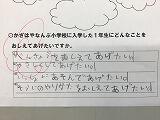 ○かきはやなんぶ小学校に入学した1年生にどんなことを
おしえてあげたいですか。
べんきょうを教しえてあげたい。
をしえてあげたい。
いっしょにあそんであげたい。
そうじのやりかたをおしえてあげたい。